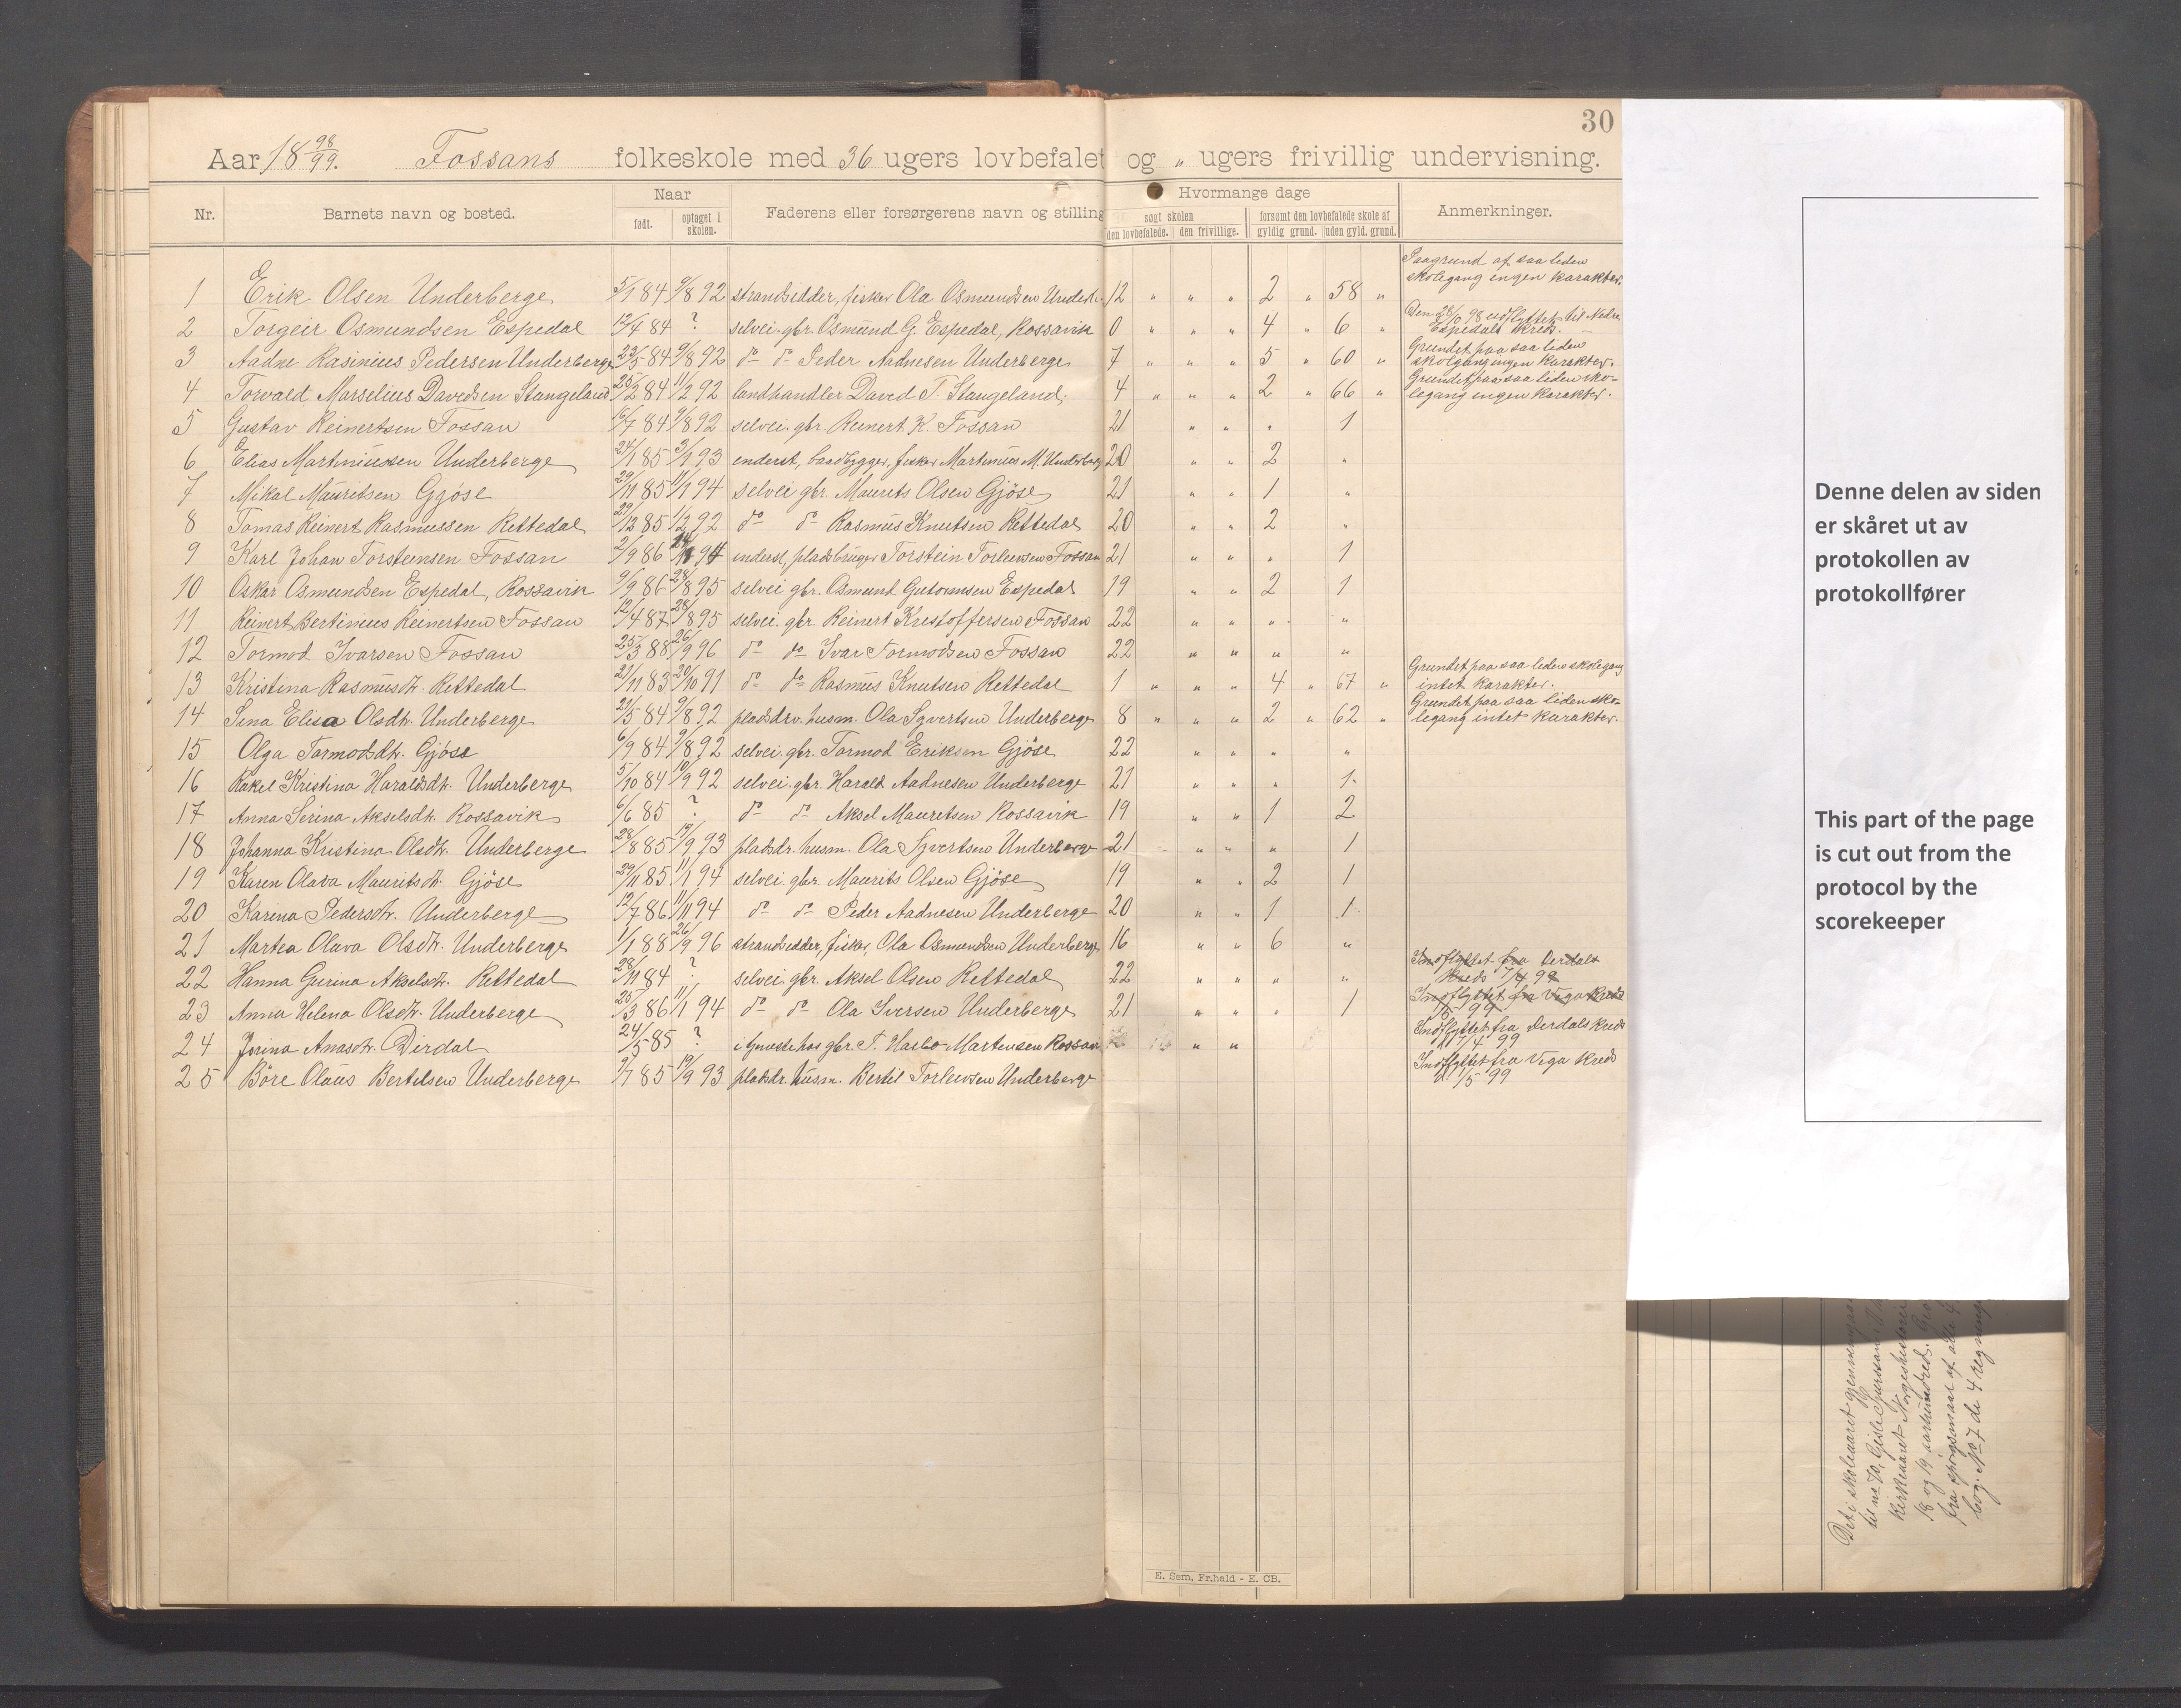 30
Aar 18 98/99. Fossans folkeskole med 36 ugers lovbefalet og „ ugers frivillig undervisning.
Nr. Barnets navn og bosted. Naar født. optaget i skolen. Faderens eller forsørgerens navn og stilling Hvormange dage søgt skolen den lovbefalede. den frivillige. forsømt den lovbefalede skole af gyldig grund. uden gyld. grund. Anmerkninger.
1 Erik Olsen Underberge 5/1 84 9/8 92 strandsidder, fisker Ola Osmundsen 12 „ „ „ 2 „ 58 „ Paagrund af saa liden skolegang ingen karakter.
2 Torgeir Osmundsen Espedal 12/4 84 ? selvei. gbr. Osmund G. Espedal, Rossavik 0 „ „ „ 4 „ 6 „ Den 28/10 98 udflyttet til Nedre Espedals Kreds.
3 Aadne Rasinius Pedersen Underberge 22/5 84 9/8 92 do do Peder Aadnesen Underberge 7 „ „ „ 5 „ 60 „ Grundet paa saa liden skolegang ingen karakter.
4 Torvald Marselius Davidsen Stangeland 25/2 84 11/2 92 landhandler David T. Stangeland. 4 „ „ „ 2 „ 66 „ Grundet paa saa liden skolegang ingen karakter.
5 Gustav Reinertsen Fossan 16/7 84 9/8 92 selvei. gbr. Reinert K. Fossan 21 „ „ „ 1
6 Elias Martiniussen Underberge 24/1 85 3/1 93 enderst, baadbygger, fisker Martinius M. Underberg 20 „ „ 2 „
7 Mikal Mauritsen Gjöse 29/11 85 11/1 94 selvei gbr. Maurits Olsen Gjöse 21 „ „ 1 „
8 Tomas Reinert Rasmussen Rettedal 29/12 85 1/2 92 do do Rasmus Knutsen Rettedal 20 „ „ 2 „
9 Karl Johan Torsteinsen Fossan 2/9 86 94 enderst, pladsbruger Torstein Torleivsen Fossan 21 „ „ „ 1
10 Oskar Osmundsen Espedal, Rossavik 9/9 86 28/8 95 selvei gbr. Osmund Gutormsen Espedal 19 „ „ 2 1
11 Reinert Bertinius Reinertsen Fossan 12/4 87 28/8 95 selvei. gbr. Reinert Kristoffersen Fossan 22 „ „ „ „
12 Tormod Ivarsen Fossan 25/3 88 26/9 96 do do Ivar Tormodsen Fossan 22 „ „ „ „
13 Kristina Rasmusdtr. Rettedal 27/11 83 20/10 91 do do Rasmus Knutsen Rettedal 1 „ „ „ 4 „ 67 „ Grundet paa saa liden skolegang intet karakter.
14 Sina Elisa Olsdtr. Underberge 21/5 84 9/8 92 pladsdrv. husm. Ola Syvertsen Underberge 8 „ „ „ 2 „ 62 „ Grundet paa saa liden skolegang intet karakter.
15 Olga Tormodsdtr. Gjöse 6/9 84 9/8 92 selvei. gbr. Tormod Eriksen Gjöse 22 „ „ „ „
16 Rakel Kristina Haraldsdtr. Underberge 5/10 84 10/9 92 selvei. gbr. Harald Aadnesen Underberge 21 „ „ „ 1.
17 Anna Serina Akselsdtr. Rossavik 6/6 85 ? do do Aksel Mauritsen Rossavik 19 „ „ 1 2
18 Johanna Kristina Olsdtr. Underberge 28/8 85 19/9 93 pladsdr. husm. Ola Syvertsen Underberge 21 „ „ „ 1
19 Karen Olava Mauritsdtr. Gjöse 29/11 85 11/1 94 selvei. gbr. Maurits Olsen Gjöse 19 „ „ 2 1
20 Karina Pedersdtr. Underberge 12/7 86 11/11 94 do do Peder Aadnesen Underberge 20 „ „ 1 1
21 Martea Olava Olsdtr. Underberge 1/1 88 26/9 96 strandsidder, fisker, Ola Osmundsen Underberge 16 „ „ 6 „
22 Hanna Gurina Akselsdtr. Rettedal 28/11 84 ? selvei. gbr. Aksel Olsen Rettedal 22 „ „ „ „ Indflyttet fra Derdals Kreds 7/4 99
23 Anna Helena Olsdtr. Underberge 25/3 86 11/1 94 do do Ola Iversen Underberge 21 „ „ „ 1 Indflyttet fra Vega Kreds 1/5 99
24 Jorina Anasdtr. Dirdal 24/5 85 ? gbr. T. Martensen Rossavik „ „ Indflyttet fra Derdals Kreds 17/4 99
25 Böre Olaus Bertelsen Underberge 9/7 85 19/9 93 pladsdr. husm. Bertil Torleivsen Underberge Indflyttet fra Vega Kreds 2/5 99
E. Sem, Fr.hald - E. CB.
Denne delen av siden
er skåret ut av
protokollen av
protokollfører
This part of the page
is cut out from the
protocol by the
scorekeeper
Det i skoleaaret
til no 70,
kirkeaaret Norgeshistorie
18 og 19 aarhundred.
fra spörgsmaal af alle 4
bog. No 7 de 4 regning